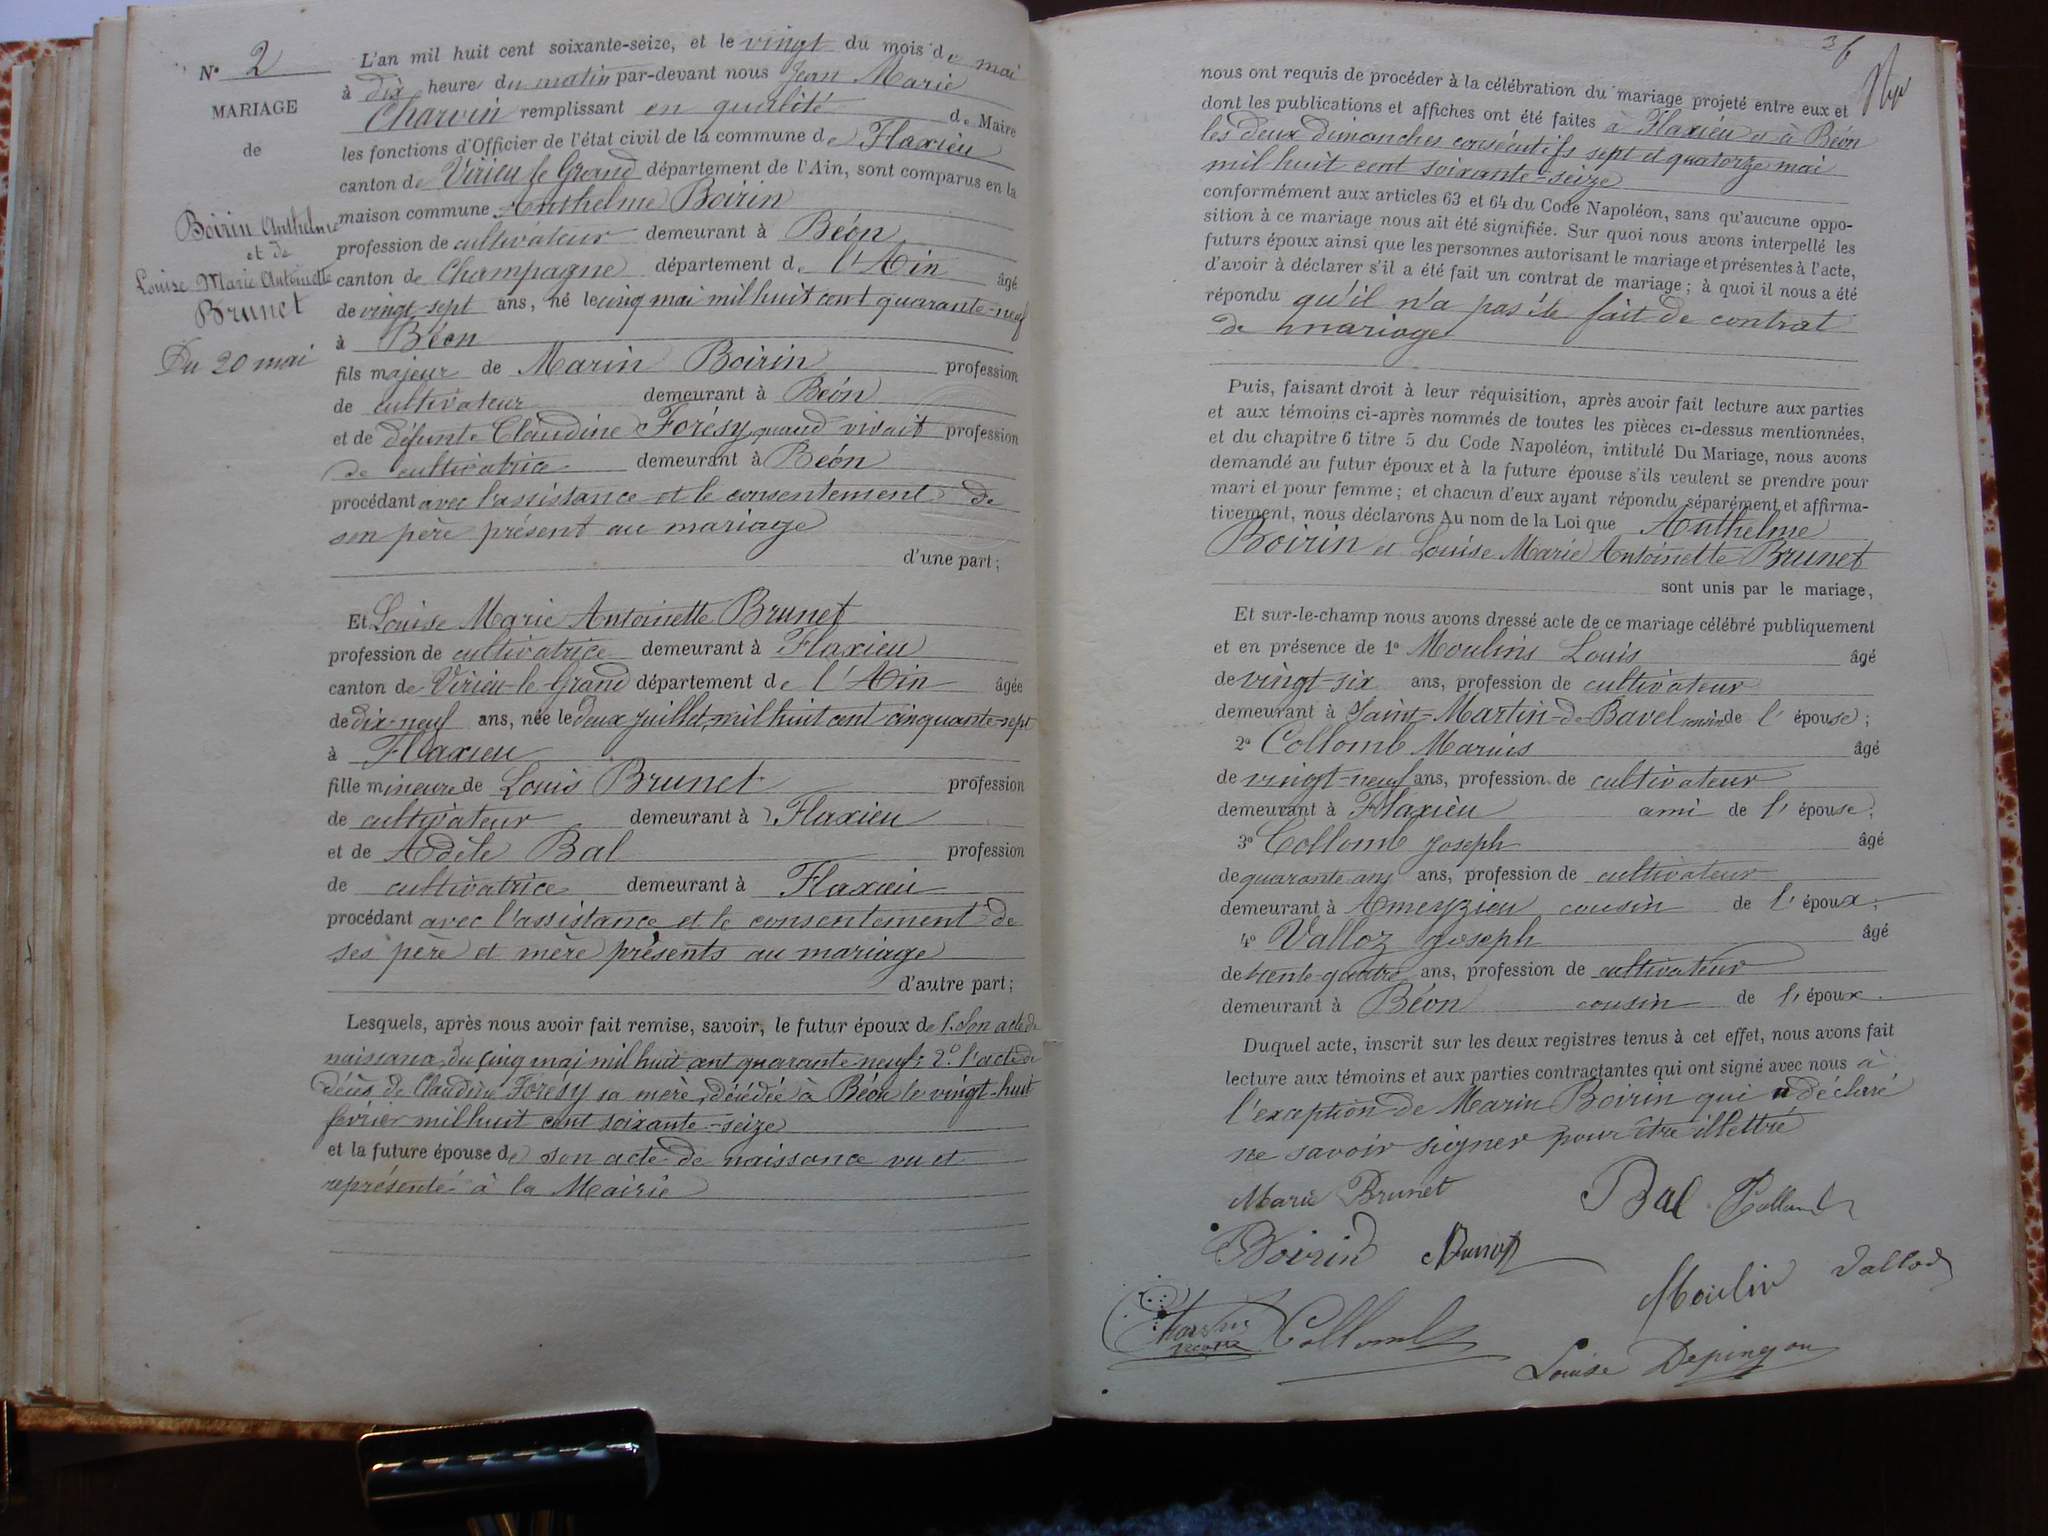 N° 2
MARIAGE
de
Boirin Anthelme
et de
Louise Marie Antoinette
Brunet
Du 20 mai
L'an mil huit cent soixante-seize, et le vingt du mois de mai
à dix heure du matin par-devant nous Jean Marie
Charvin remplissant en qualité de Maire
les fonctions d'Officier de l'état civil de la commune de Flaxieu
canton de Virieu le Grand département de l'Ain, sont comparus en la
maison commune Anthelme Boirin
profession de cultivateur demeurant à Béon
canton de Champagne département de l'Ain âgé
de vingt-sept ans, né le cinq mai mil huit cent quarante-neuf
à Béon
fils majeur de Marin Boirin profession
de cultivateur demeurant à Béon
et de défunte Claudine Forésy quand vivait profession
de cultivatrice demeurant à Béon
procédant avec l'assistance et le consentement de
son père présent au mariage
d'une part;
Et Louise Marie Antoinette Brunet
profession de cultivatrice demeurant à Flaxieu
canton de Virieu-le-Grand département de l'Ain âgée
de dix-neuf ans, née le deux juillet mil huit cent cinquante-sept
à Flaxieu
fille mineure de Louis Brunet profession
de cultivateur demeurant à Flaxieu
et de Adèle Bal profession
de cultivatrice demeurant à Flaxieu
procédant avec l'assistance et le consentement de
ses père et mère présents au mariage
d'autre part;
Lesquels, après nous avoir fait remise, savoir, le futur époux de 1.° son acte de
naissance du cinq mai mil huit cent quarante neuf; 2.° l'acte de
décès de Claudine Foresy sa mère, décédée à Béon le vingt-huit
février mil huit cent soixante-seize
et la future épouse de son acte de naissance vu et
représenté à la Mairie
36
nous ont requis de procéder à la célébration du mariage projeté entre eux et
dont les publications et affiches ont été faites à Flaxieu et à Béon
les deux dimanches consécutifs sept et quatorze mai
mil huit cent soixante-seize
conformément aux articles 63 et 64 du Code Napoléon, sans qu'aucune oppo-
sition à ce mariage nous ait été signifiée. Sur quoi nous avons interpellé les
futurs époux ainsi que les personnes autorisant le mariage et présentes à l'acte,
d'avoir à déclarer s'il a été fait un contrat de mariage; à quoi il nous a été
répondu qu'il n'a pas été fait de contrat
de mariage
Puis, faisant droit à leur réquisition, après avoir fait lecture aux parties
et aux témoins ci-après nommés de toutes les pièces ci-dessus mentionnées,
et du chapitre 6 titre 5 du Code Napoléon, intitulé Du Mariage, nous avons
demandé au futur époux et à la future épouse s'ils veulent se prendre pour
mari et pour femme; et chacun d'eux ayant répondu séparément et affirma-
tivement, nous déclarons Au nom de la Loi que Anthelme
Boirin et Louise Marie Antoinette Brunet
sont unis par le mariage,
Et sur-le-champ nous avons dressé acte de ce mariage célébré publiquement
et en présence de 1° Moulins Louis âgé
de vingt-six ans, profession de cultivateur
demeurant à Saint-Martin-de-Bavel cousin de l'épouse;
2° Collomb Marius âgé
de vingt-neuf ans, profession de cultivateur
demeurant à Flaxieu ami de l'épouse;
3° Collomb Joseph âgé
de quarante ans ans, profession de cultivateur
demeurant à Ameyzieu cousin de l'époux;
4° Valloz Joseph âgé
de trente-quatre ans, profession de cultivateur
demeurant à Béon cousin de l'époux.
Duquel acte, inscrit sur les deux registres tenus à cet effet, nous avons fait
lecture aux témoins et aux parties contractantes qui ont signé avec nous à
l'exception de Marin Boirin qui a déclaré
ne savoir signer pour être illettré
Marie Brunet Bal Collomb
Boirin Brunet
Moulin Vallod
Collomb
Louise Depingon